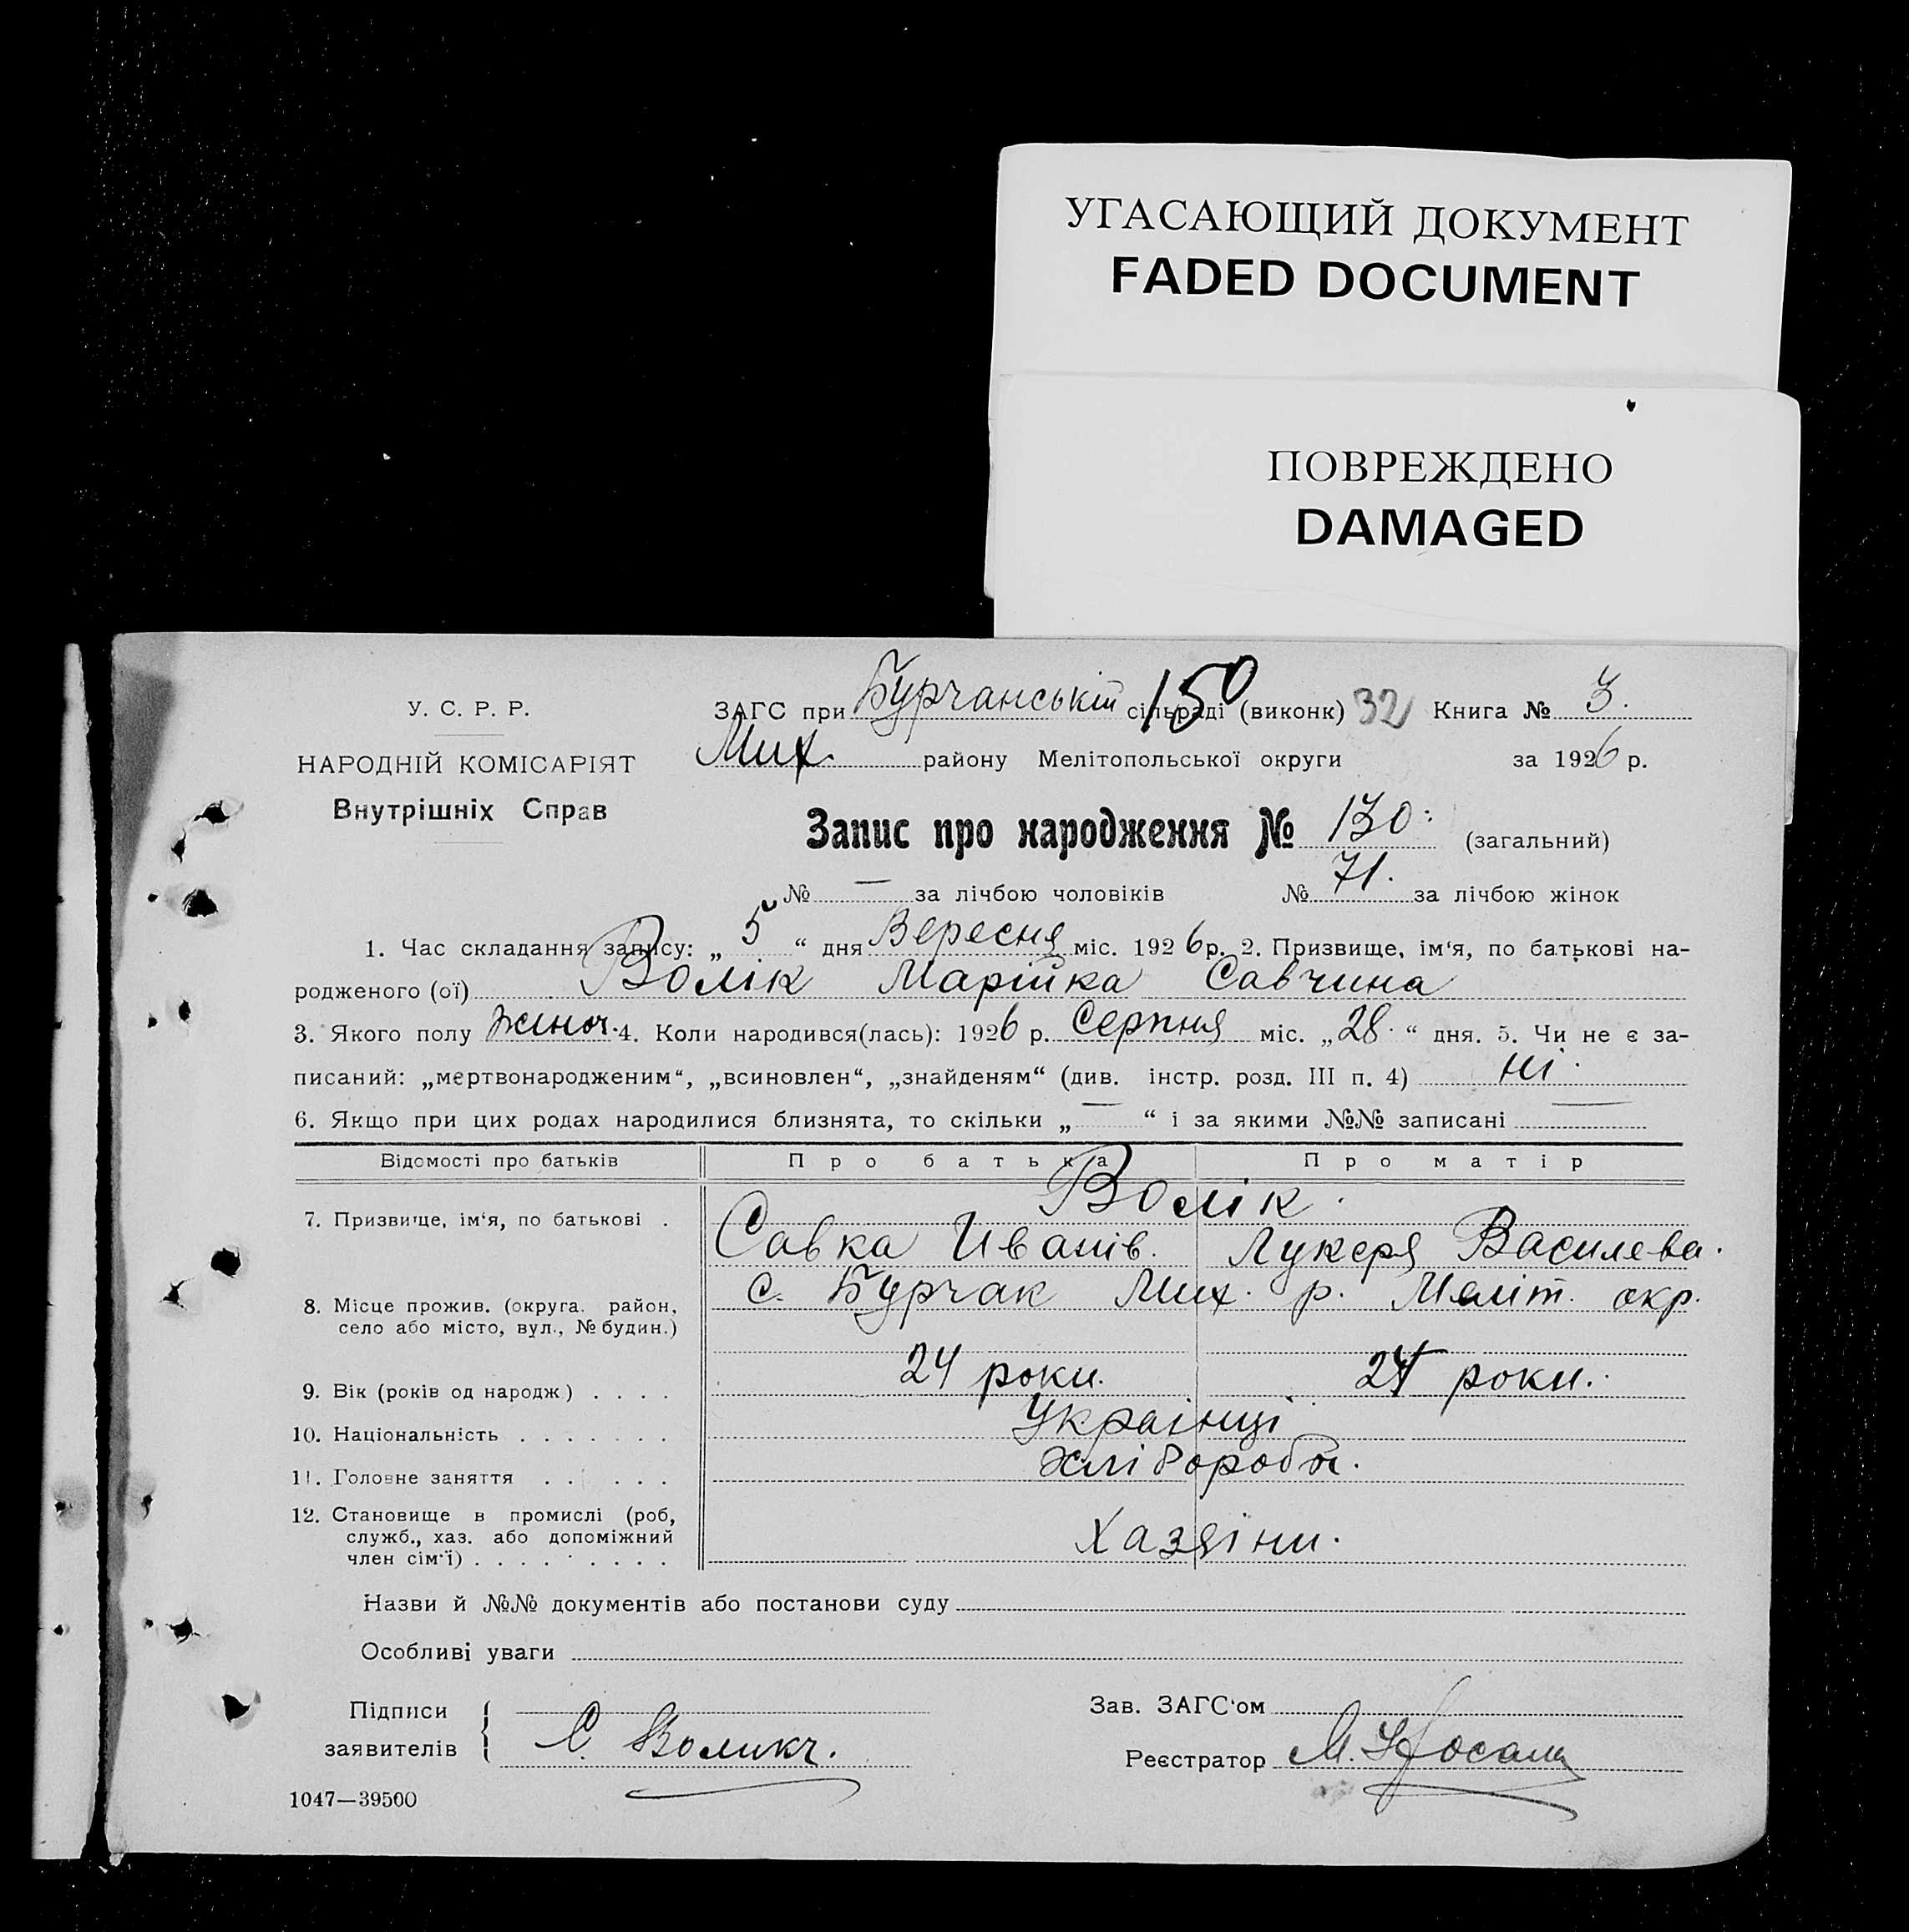 УГАСАЮЩИЙ ДОКУМЕНТ
FADED DOCUMENT
ПОВРЕЖДЕНО
DAMAGED
У. С. Р. Р.
НАРОДНІЙ КОМІСАРІЯТ
Внутрішніх Справ
ЗАГС при Бурчанській сільраді (виконк) 150 32 Книга № 3.
Мих. району Мелітопольської округи за 1926 р.
Запис про народження № 130. (загальний)
№ — за лічбою чоловіків № 71. за лічбою жінок
1. Час складання запису: „ 5 “ дня Вересня міс. 1926 р. 2. Призвище, ім‘я, по батькові на-
родженого (ої) Волік Марійка Савчина
3. Якого полу жіноч. 4. Коли народився(лась): 1926 р. Серпня міс. „28.“ дня. 5. Чи не є за-
писаний: „мертвонародженим“, „всиновлен“, „знайденям“ (див. інстр. розд. III п. 4) ні.
6. Якщо при цих родах народилися близнята, то скільки „ — “ і за якими №№ записані —
Відомості про батьків Про батька Про матір
7. Призвище, ім‘я, по батькові . Волік.
Савка Иванів. Лукеря Василева.
8. Місце прожив. (округа, район, с. Бурчак Мих. р. Меліт. окр.
село або місто, вул., № будин.)
9. Вік (років од народж) . . . . 24 роки. 24 роки.
10. Національність . . . . . . . Украінці
11. Головне заняття . . . . . . Хліборобы.
12. Становище в промислі (роб,
служб., хаз. або допоміжний Хазяіни.
член сім‘ї) . . . . . . . . .
Назви й №№ документів або постанови суду
Особливі уваги
Підписи Зав. ЗАГС‘ом
заявителів С. Реєстратор М.
1047—39500